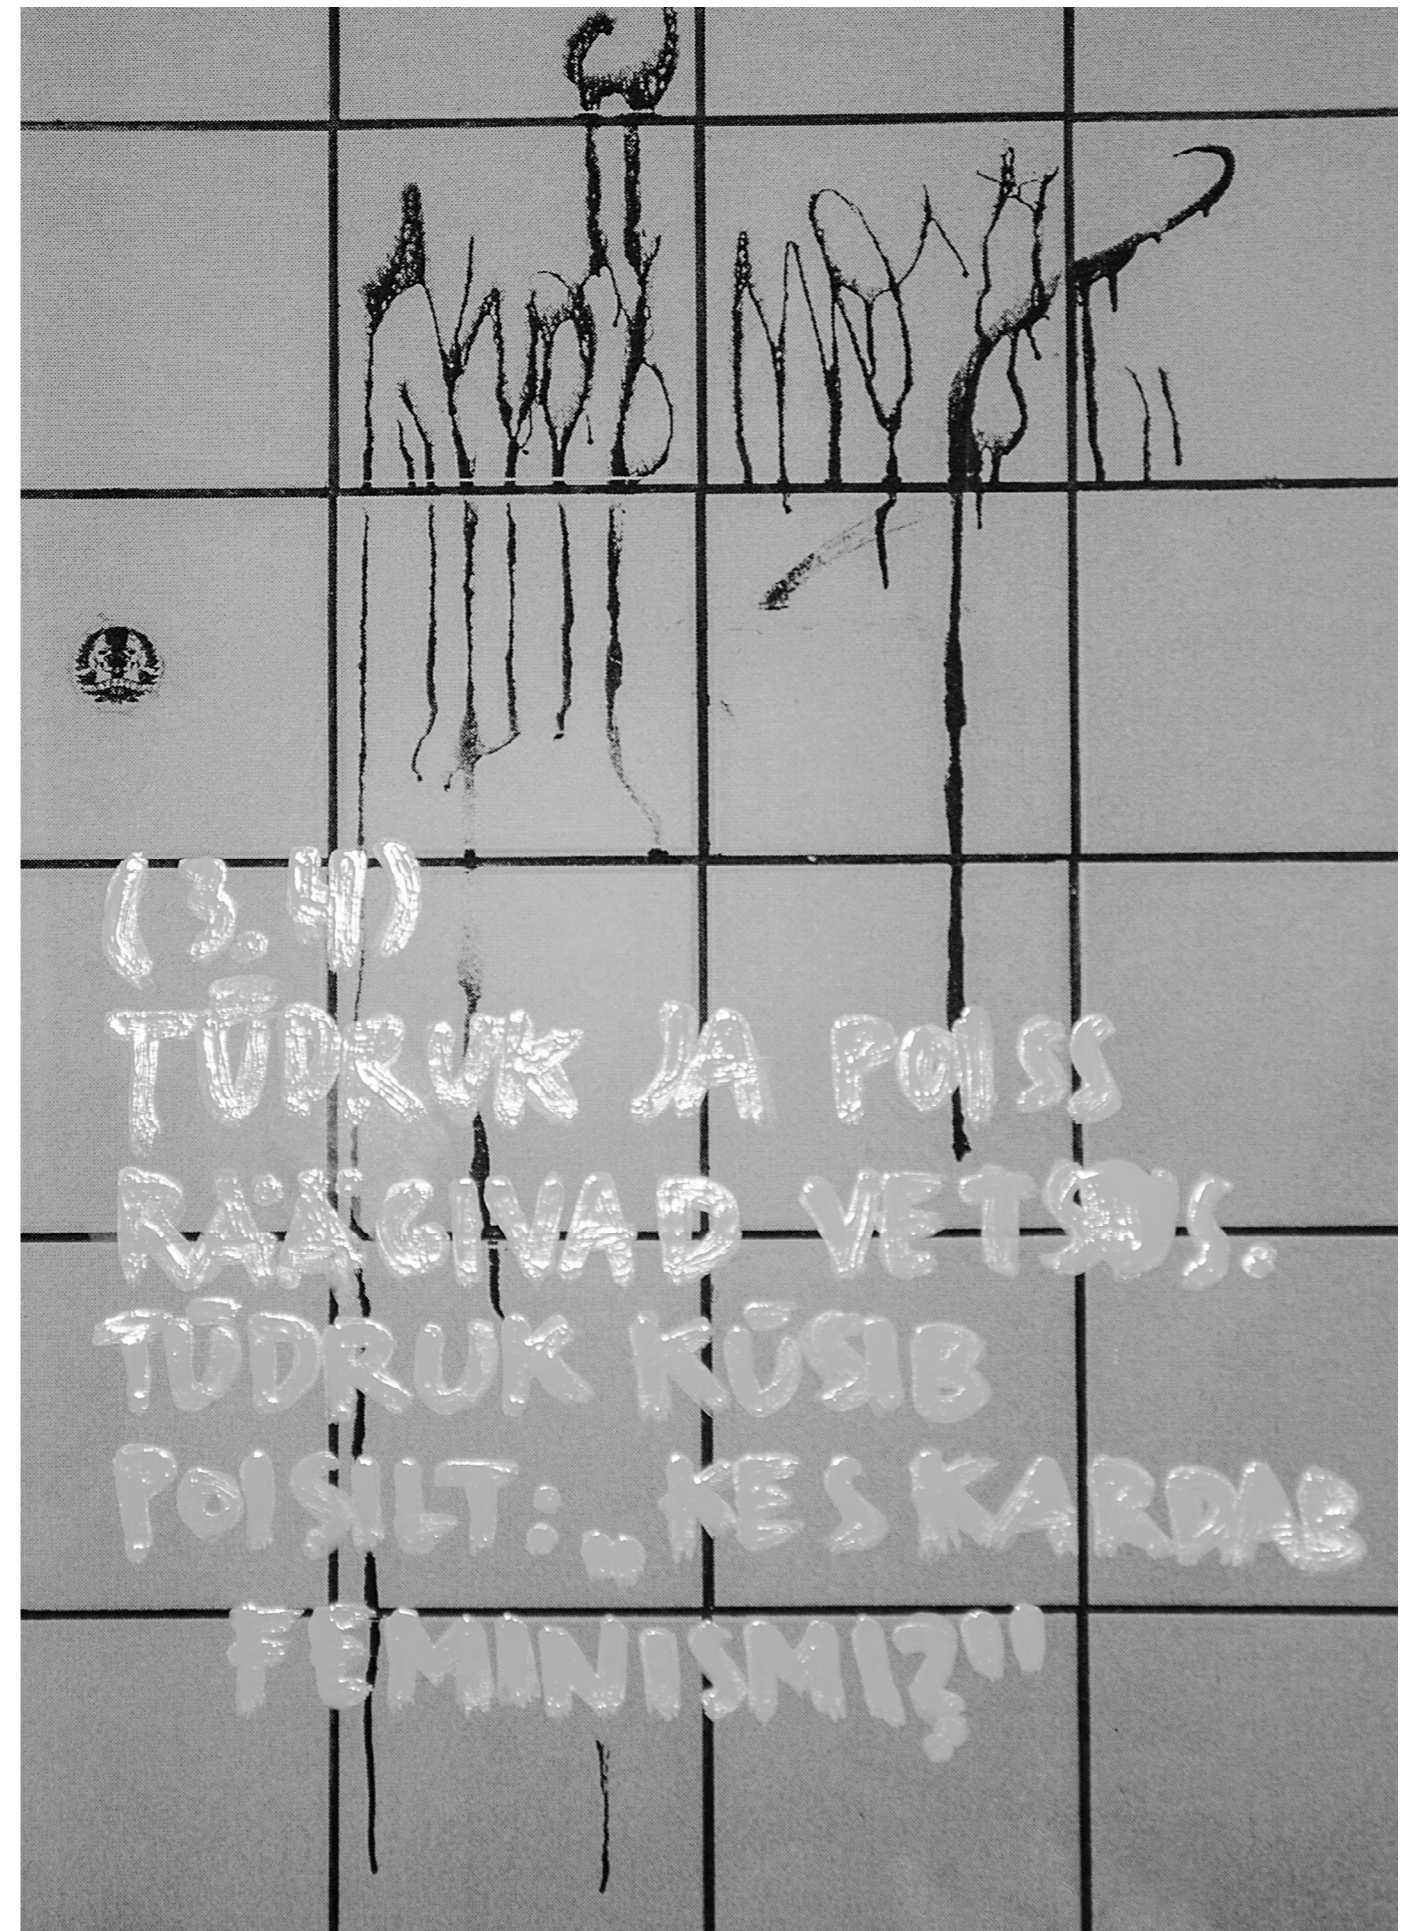 (3.4)
TÜDRUK JA POISS
RÄÄGIVAD VETSUS.
TÜDRUK KÜSIB
POISILT: „KES KARDAB
FEMINISMI?"